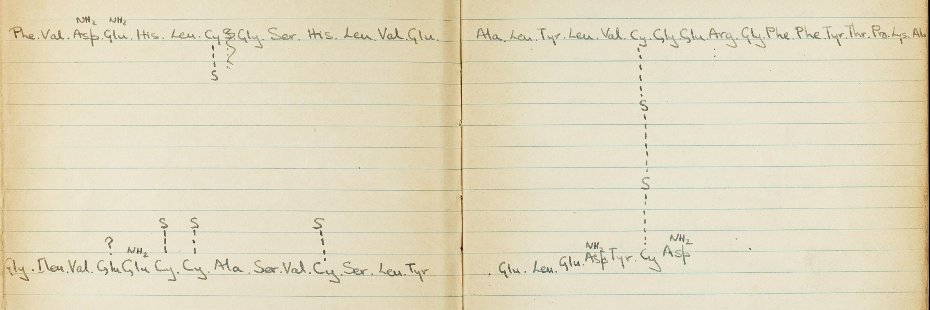 NH2 NH2
Phe. Val. Asp. Glu. His. Leu. Cy Gly. Ser. His. Leu. Val. Glu.
S
NH2
S S S
?
Gly. Ileu. Val. Glu Glu Cy. Cy. Ala. Ser. Val. Cy. Ser. Leu. Tyr
Ala. Leu. Tyr. Leu. Val. Cy. Gly Glu. Arg. Gly Phe Phe Tyr. Thr. Pro. Lys. Ala
S
S
NH2 NH2
. Glu. Leu. Glu. Asp Tyr. Cy Asp